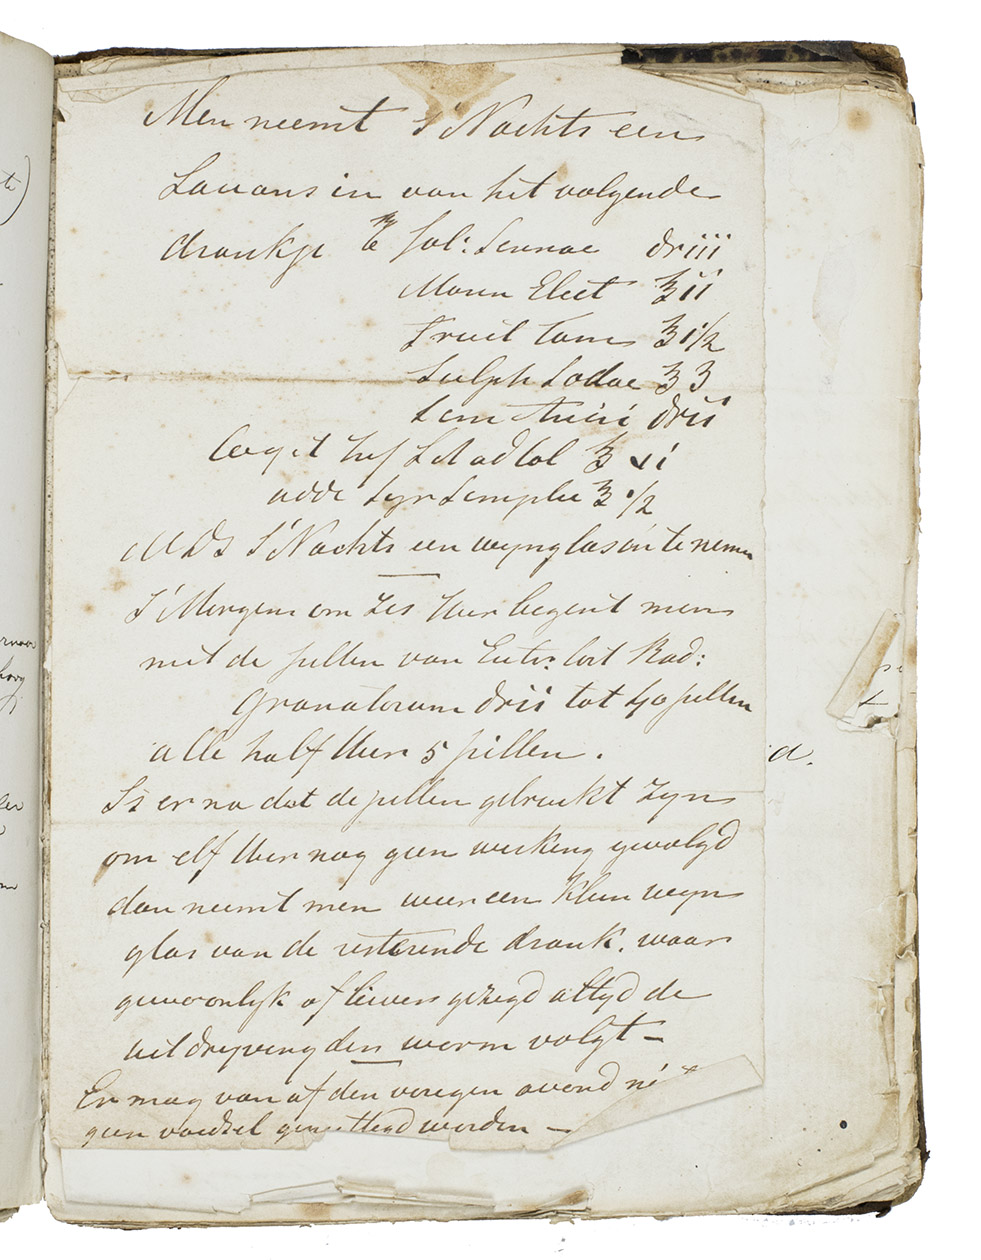 Men neemt s'Nachts een
Lavans in van het volgende
drankje ℞ fol: Sennae driii
Mann Elect ℥ii
Fruct Tam ℥i/2
Sulph Sodae ℥3
Sem Anisi drii
Coq it Inf L A ad Col ℥ vi
adde Syr Simplic ℥ i/2
MDS S'Nachts een wynglas in te nemen
S'Morgens om Zes Uur begint men
met de pillen van Extr: Cort Rad:
Granatorum drii tot 40 pillen
alle half Uur 5 pillen.
Is er na dat de pillen gebruikt Zyn
om elf Uur nog geen werking gevolgd
dan neemt men weer een Klein wyn
glas van de resterende drank. waar
gewoonlyk of liever gezegd altyd de
uitdryving den worm volgt —
Er mag van af den vorigen avond
geen voedsel genuttigd worden —
a.